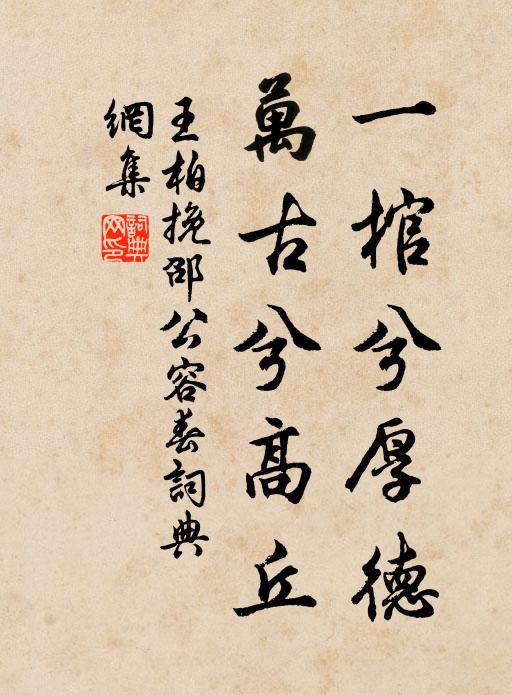 一棺兮厚德
萬古兮高丘
王柏挽邵公容春詞典
網集
詞典网印